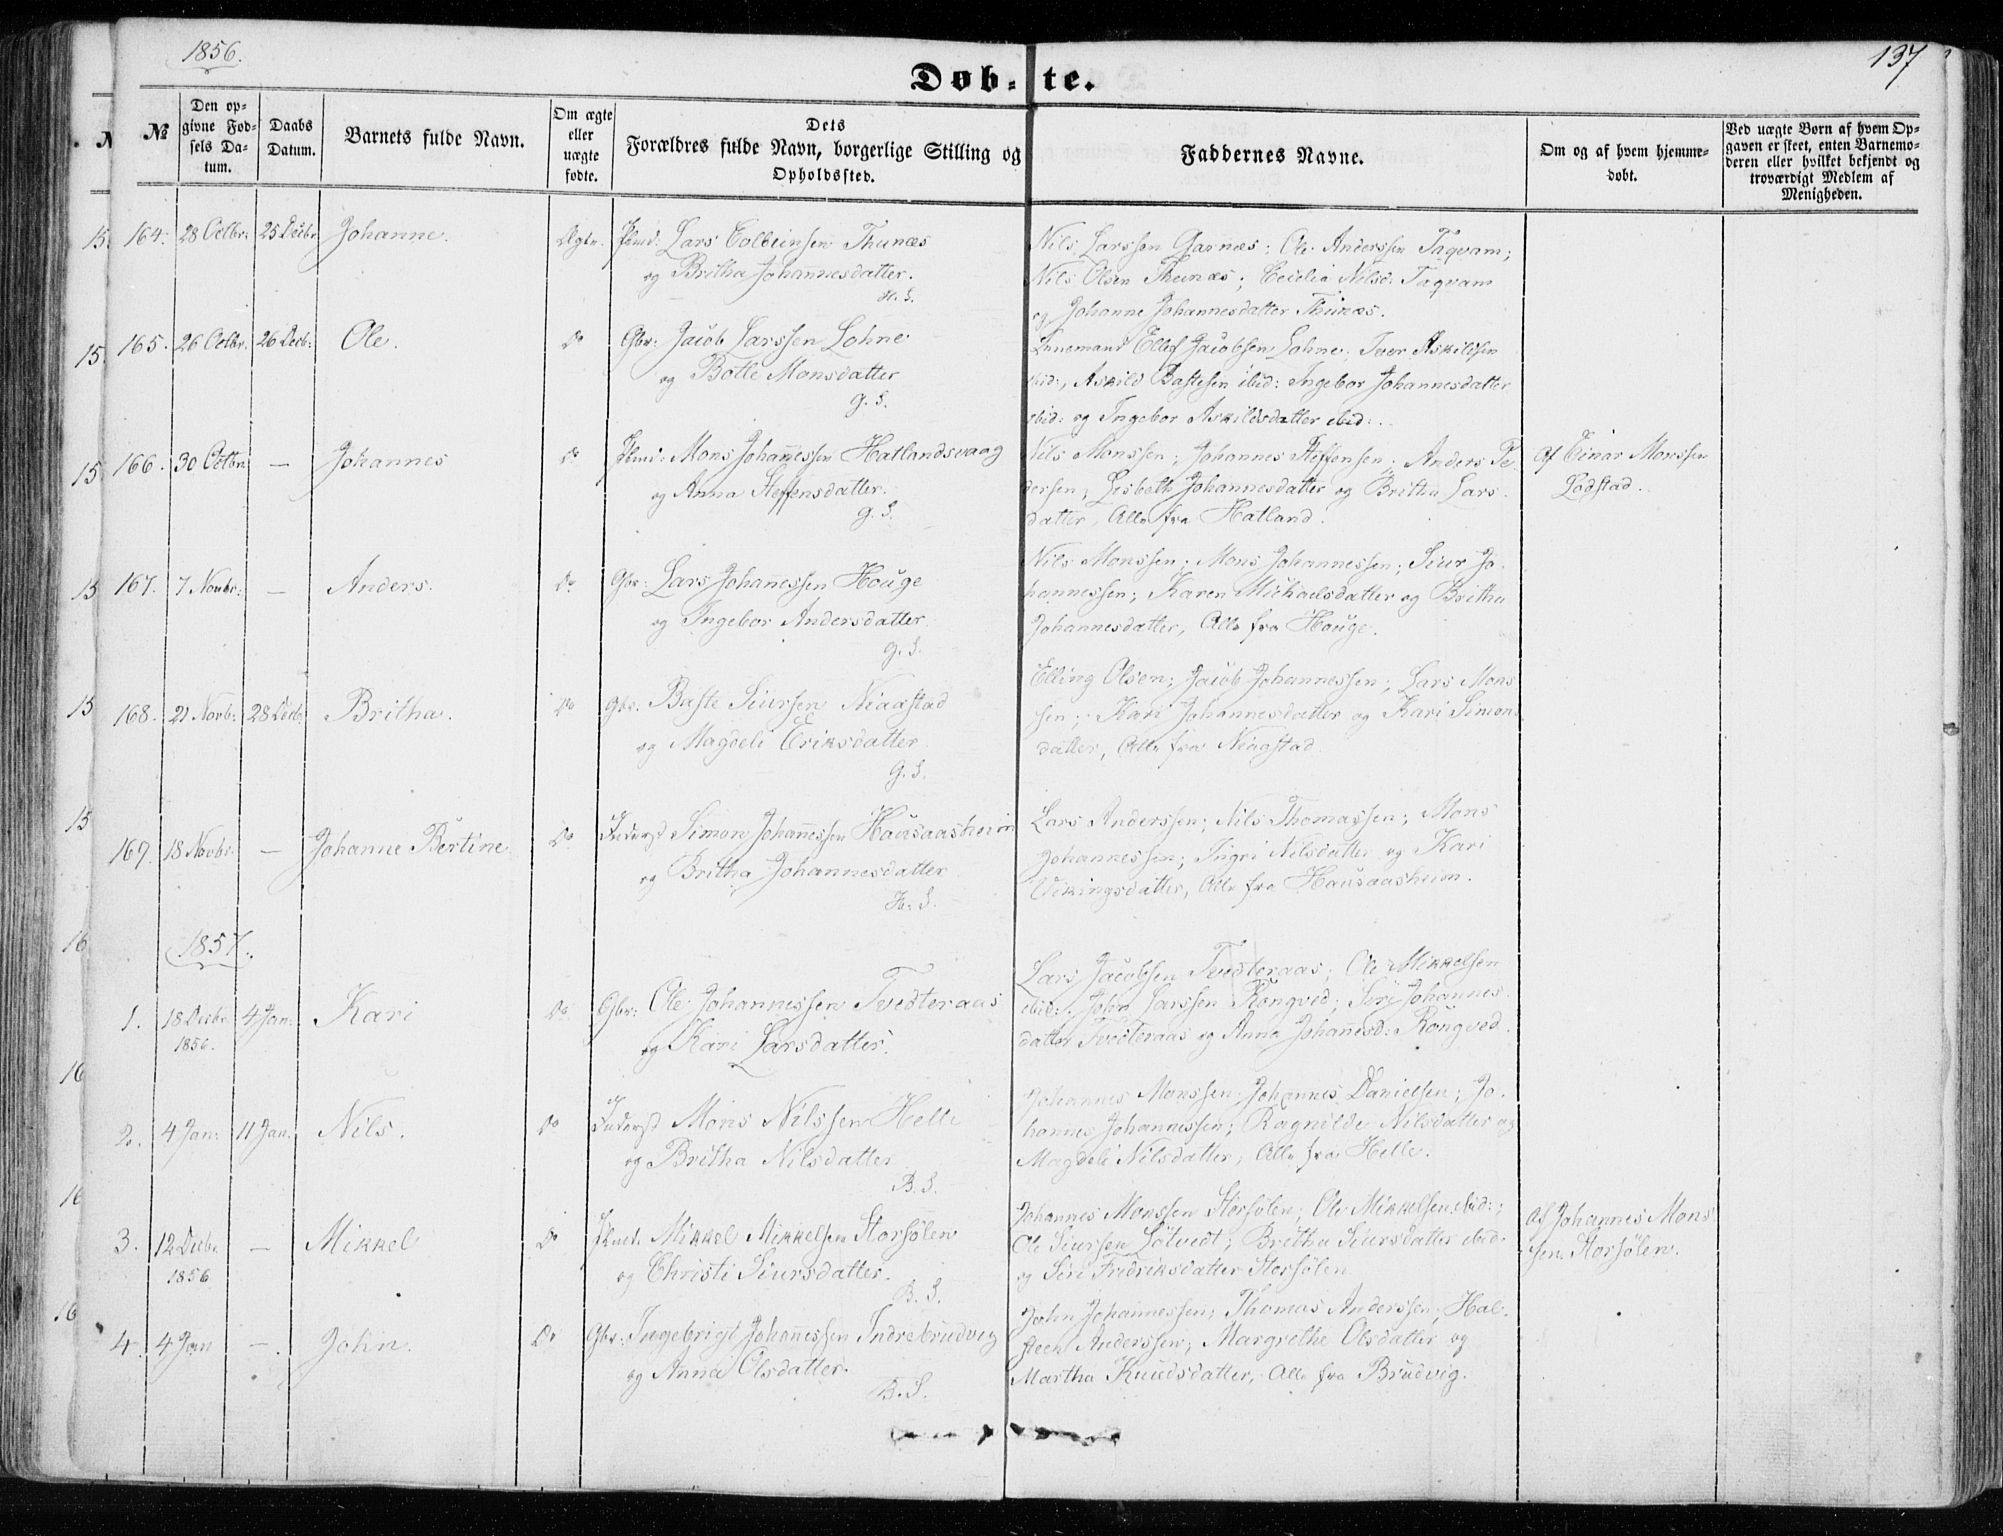 1856.
137
Døb-te.
№
Den op-
givne Fød-
sels Da-
tum.
Daabs
Datum.
Barnets fulde Navn.
Om ægte
eller
uægte
fødte.
Dets
Forældres fulde Navn, borgerlige Stilling og
Opholdssted.
Faddernes Navne.
Om og af hvem hjemme-
døbt.
Ved uægte Børn af hvem Op-
gaven er skeet, enten Barnemo-
deren eller hvilket bekjendt og
troværdigt Medlem af
Menigheden.
164. 28 Octbr: 25 Decbr Johanne. Ægte. Lars Colbeinsen Thunæs
og Britha Johannesdatter.
H. S.
Nils Larssen Garnæs; Ole Anderssen Taqvam;
Nils Olsen Thunæs; Cecilia Nilsd: Taqvam
og Johanne Johannesdatter Thunæs.
165. 26 Octbr. 26 Decb: Ole. Do Gbr: Jacob Larssen Lohne
og Botle Monsdatter
G. S.
Lunemand Ellef Jacobsen Lohne; Iver Askildsen
ibid:, Askild Bastesen ibid: Ingebor Johannesdatter
ibid: og Ingebor Askildsdatter ibid:.
166. 30 Octbr: — Johannes Do Mons Johannessen Hatlandsvaag
og Anna Steffensdatter.
G. S.
Nils Monssen; Johannes Steffensen; Anders Pe-
dersen; Lisbeth Johannesdatter og Britha Lars-
datter, Alle fra Hatland.
Af Einar Monssen
Ladstad.
167. 7 Novbr: — Anders. Do Gbr: Lars Johannessen Houge
og Ingebor Andersdatter.
G. S.
Nils Monssen; Mons Johannessen; Siur Jo-
hannessen; Karen Michaelsdatter og Britha
Johannesdatter, Alle fra Houge.
168. 21 Novb: 28 Decb: Britha. Do Gbr. Baste Siursen Niaastad
og Magdeli Eriksdatter
G. S.
Elling Olsen; Jacob Johannessen; Lars Mons-
sen; Kari Johannesdatter og Kari Simons-
datter, Alle fra Niaastad
167. 18 Novbr. — Johanne Bertine Do Inderst Simon Johannessen Hausaasheim
og Britha Johannesdatter
H. S.
Lars Anderssen; Nils Thomassen; Mons
Johannessen; Ingri Nilsdatter og Kari
Vikingsdatter, Alle fra Hausaasheim.
1857.
1. 18 Decbr 4 Jan: Kari Do Gbr: Ole Johannessen Tvedteraas
1856.
og Kari Larsdatter.
Lars Jacobsen Tvedteraas; Ole Mikkelsen
ibid:. John Larssen Rongved; Siri Johannes-
datter Tvedteraas og Anna Johannesd: Rongved.
2. 4 Jan: 11 Jan: Nils. Do Inderst Mons Nilssen Helle
og Britha Nilsdatter
B. S.
Johannes Monssen; Johannes Danielsen; Jo-
hannes Johannessen; Ragnilde Nilsdatter og
Magdeli Nilsdatter, Alle fra Helle.
3. 12 Decbr — Mikkel Do Mikkel Mikkelsen Storsølen
1856
og Christi Siursdatter.
B. S.
Johannes Monssen Storsølen; Ole Mikkelsen ibid:;
Ole Siursen Løtvedt; Britha Siursdatter ibid:
og Siri Fredriksdatter Storsølen
Af Johannes Mons-
sen Storsølen.
4. 4 Jan —. John. Do Gbr: Ingebrigt Johannessen Indrebrudvig
og Anna Olsdatter.
B. S.
John Johannessen; Thomas Anderssen; Hal-
steen Anderssen; Margrethe Olsdatter og
Martha Knudsdatter, Alle fra Brudvig.